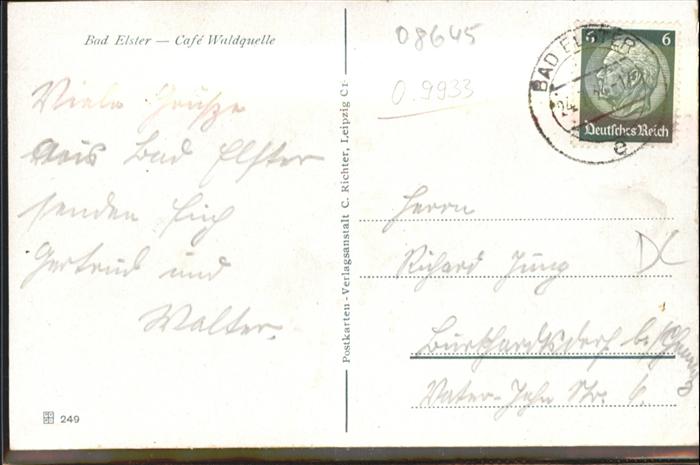 Bad Elster — Café Waldquelle
Viele Grüsse
aus Bad Elster
senden Euch
Gertrud und
Walter.
249
Postkarten-Verlagsanstalt C. Richter, Leipzig C1
08645
0.9933
6 6
Deutsches Reich
BAD ELSTER
e
Herrn
DC
Richard Jung
Burkhardtsdorf b./Chemn.
Vater-Jahn Str. 6.